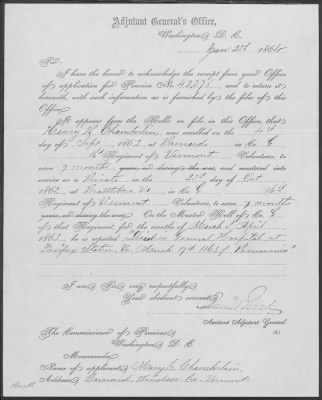 Adjutant General's Office,
Washington, D. C.
Jany 25th, 1864
Sir:
I have the honor to acknowledge the receipt from your Office
of application for Pension No. 42375, and to return it
herewith, with such information as is furnished by the files of this
Office.
It appears from the Rolls on file in this Office, that
Henry R. Chamberlin was enrolled on the 4th
day of Sept, 1862, at Barnard in Co. G
16th Regiment of Vermont Volunteers, to
serve 9 months years, or during the war, and mustered into
service as a Private on the 23d day of Oct
1862, at Brattleboro Vt., in Co. G 16th
Regiment of Vermont Volunteers, to serve 9 months
years, or during the war. On the Muster Roll of Co. G
of that Regiment, for the months of March & April
1863, he is reported "Died in General Hospital at
Fairfax Station Va. March 19th 1863 of Pneumonia"
I am, Sir, very respectfully,
Your obedient servant,
Assistant Adjutant General.
The Commissioner of Pensions,
Washington, D. C.
Memoranda:
Name of applicant, Mary C. Chamberlain,
Address, Barnard, Windsor Co. Vermont